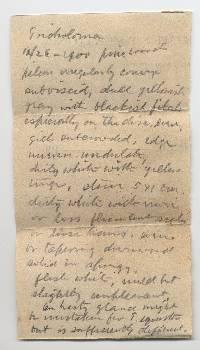 Tricholoma
10/26-1900 pine woods
pileus irregularly convex
subviscid, dull yellowish
gray with blackish fibrils
especially on the disc,
gills subcrowded, edge
uneven undulate,
dirty white with yellow
tinge, stem 5 x 1 cm.
dirty white with more
or less flocculent scales
or loose hairs, even
or tapering downward
solid or spongy,
flesh white, mild but
slightly unpleasant,
on hasty glance might
be mistaken for T.
but is sufficiently different.